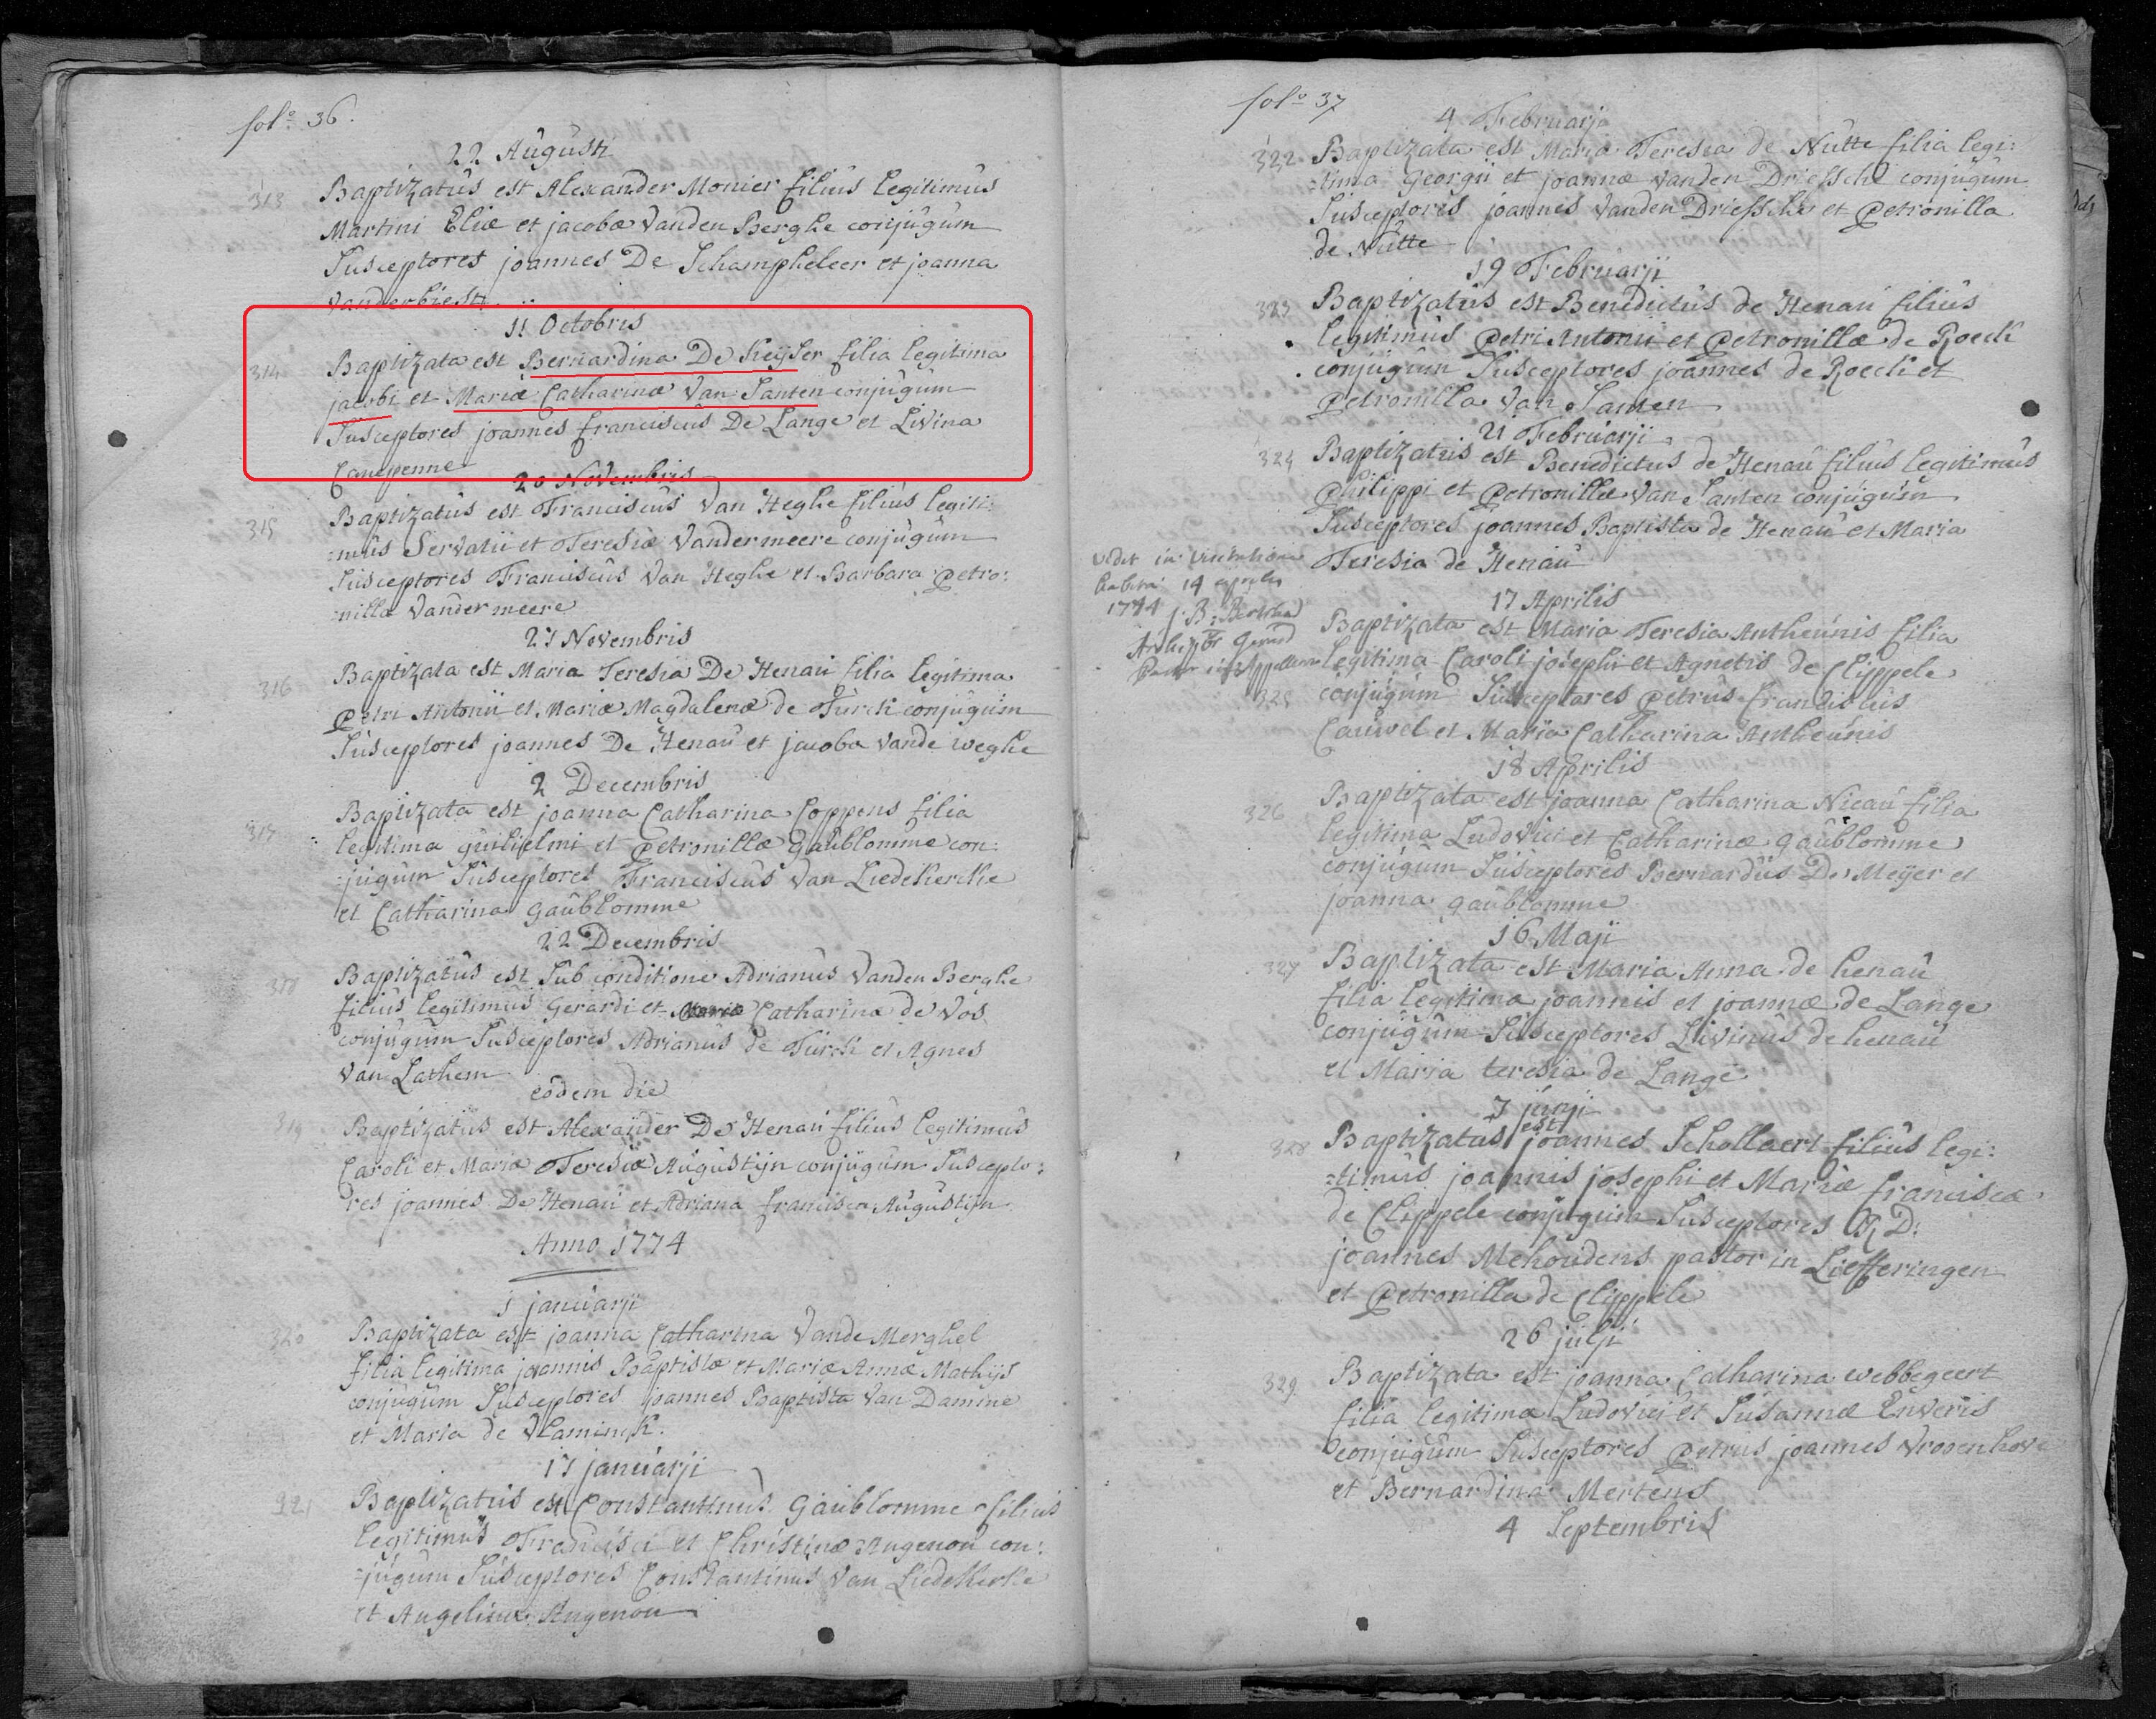 folº 36.
22 Augusti
313 Baptizatus est Alexander Monier filius legitimus
Martini Eliæ et jacobæ Vanden Berghe conjugum
Susceptores joannes De Schampheleer et joanna
Vanderbiest
11 Octobris
314 Baptizata est Bernardina De Keijser filia legitima
jacobi et Mariæ Catharinæ Van Santen conjugum
Susceptores joannes franciscus De Lange et Livina
Campenne
20 Novembris
315 Baptizatus est Franciscus Van Heghe filius legiti:
:mus Servatii et Teresiæ Vandermeere conjugum
Susceptores Franciscus Van Heghe et Barbara Petro:
:nilla Vandermeere
21 Novembris
316 Baptizata est Maria Teresia De Henau filia legitima
Petri Antonii et Mariæ Magdalenæ de Turck conjugum
Susceptores joannes De Henau et jacoba Vande weghe
2 Decembris
317 Baptizata est joanna Catharina Coppens filia
legitima guilielmi et Petronillæ gaublomme con:
:jugum Susceptores Franciscus Van Liedekercke
et Catharina gaublomme
22 Decembris
318 Baptizatus est Sub conditione Adrianus Vanden Berghe
filius legitimus Gerardi et Catharinæ de Vos
conjugum Susceptores Adrianus de Turck et Agnes
Van Lathem
eodem die
319 Baptizatus est Alexander De Henau filius legitimus
Caroli et Mariæ Teresiæ Augustijn conjugum Suscepto:
res joannes De Henau et Adriana francisca Augustijn
Anno 1774
1 januarji
320 Baptizata est joanna Catharina Vande Merghel
filia legitima joannis Baptistæ et Mariæ Annæ Mathijs
conjugum Susceptores joannes Baptista Van Damme
et Maria de Vlaminck.
17 januarji
321 Baptizatus est Constantinus Gaublomme filius
legitimus Francisci et Christinæ Angenon con:
:jugum Susceptores Constantinus Van Liedekerke
et Angelina Angenon
folº 37
4 Februarji
322 Baptizata est Maria Teresia de Nutte filia legi:
:tima Georgii et joannæ Vanden Driessche conjugum
Susceptores joannes Vanden Driessche et Petronilla
de Nutte
19 Februarji
323 Baptizatus est Benedictus de Henau filius
legitimus Petri Antonii et Petronillæ de Roeck
conjugum Susceptores joannes de Roeck et
Petronilla Van Santen
21 Februarji
324 Baptizatus est Benedictus de Henau filius legitimus
Philippi et Petronillæ Van Santen conjugum
Susceptores joannes Baptista de Henau et Maria
Teresia de Henau
vidit in visitatione
habita 14 aprilis
1774 j. B.
17 Aprilis
Baptizata est Maria Teresia Antheunis filia
legitima Caroli josephi et Agnetis de Clippele
325 conjugum Susceptores Petrus franciscus
Cauwel et Maria Catharina Antheunis
18 Aprilis
326 Baptizata est joanna Catharina Nicau filia
legitima Ludovici et Catharinæ gaublomme
conjugum Susceptores Bernardus De Meijer et
joanna gaublomme
16 Maji
327 Baptizata est Maria Anna de henau
filia legitima joannis et joannæ de Lange
conjugum Susceptores Livinus de henau
et Maria teresia de Lange
7 junji
328 Baptizatus est joannes Schollaert filius legi:
:timus joannis josephi et Mariæ franciscæ
de Clippele conjugum Susceptores R. D.
joannes Mehoudens pastor in Liefferingen
et Petronilla de Clippele
26 julji
329 Baptizata est joanna Catharina webbegeert
filia legitima Ludovici et Susannæ Enweris
conjugum Susceptores Petrus joannes Vrosenhove
et Bernardina Mertens
4 Septembris